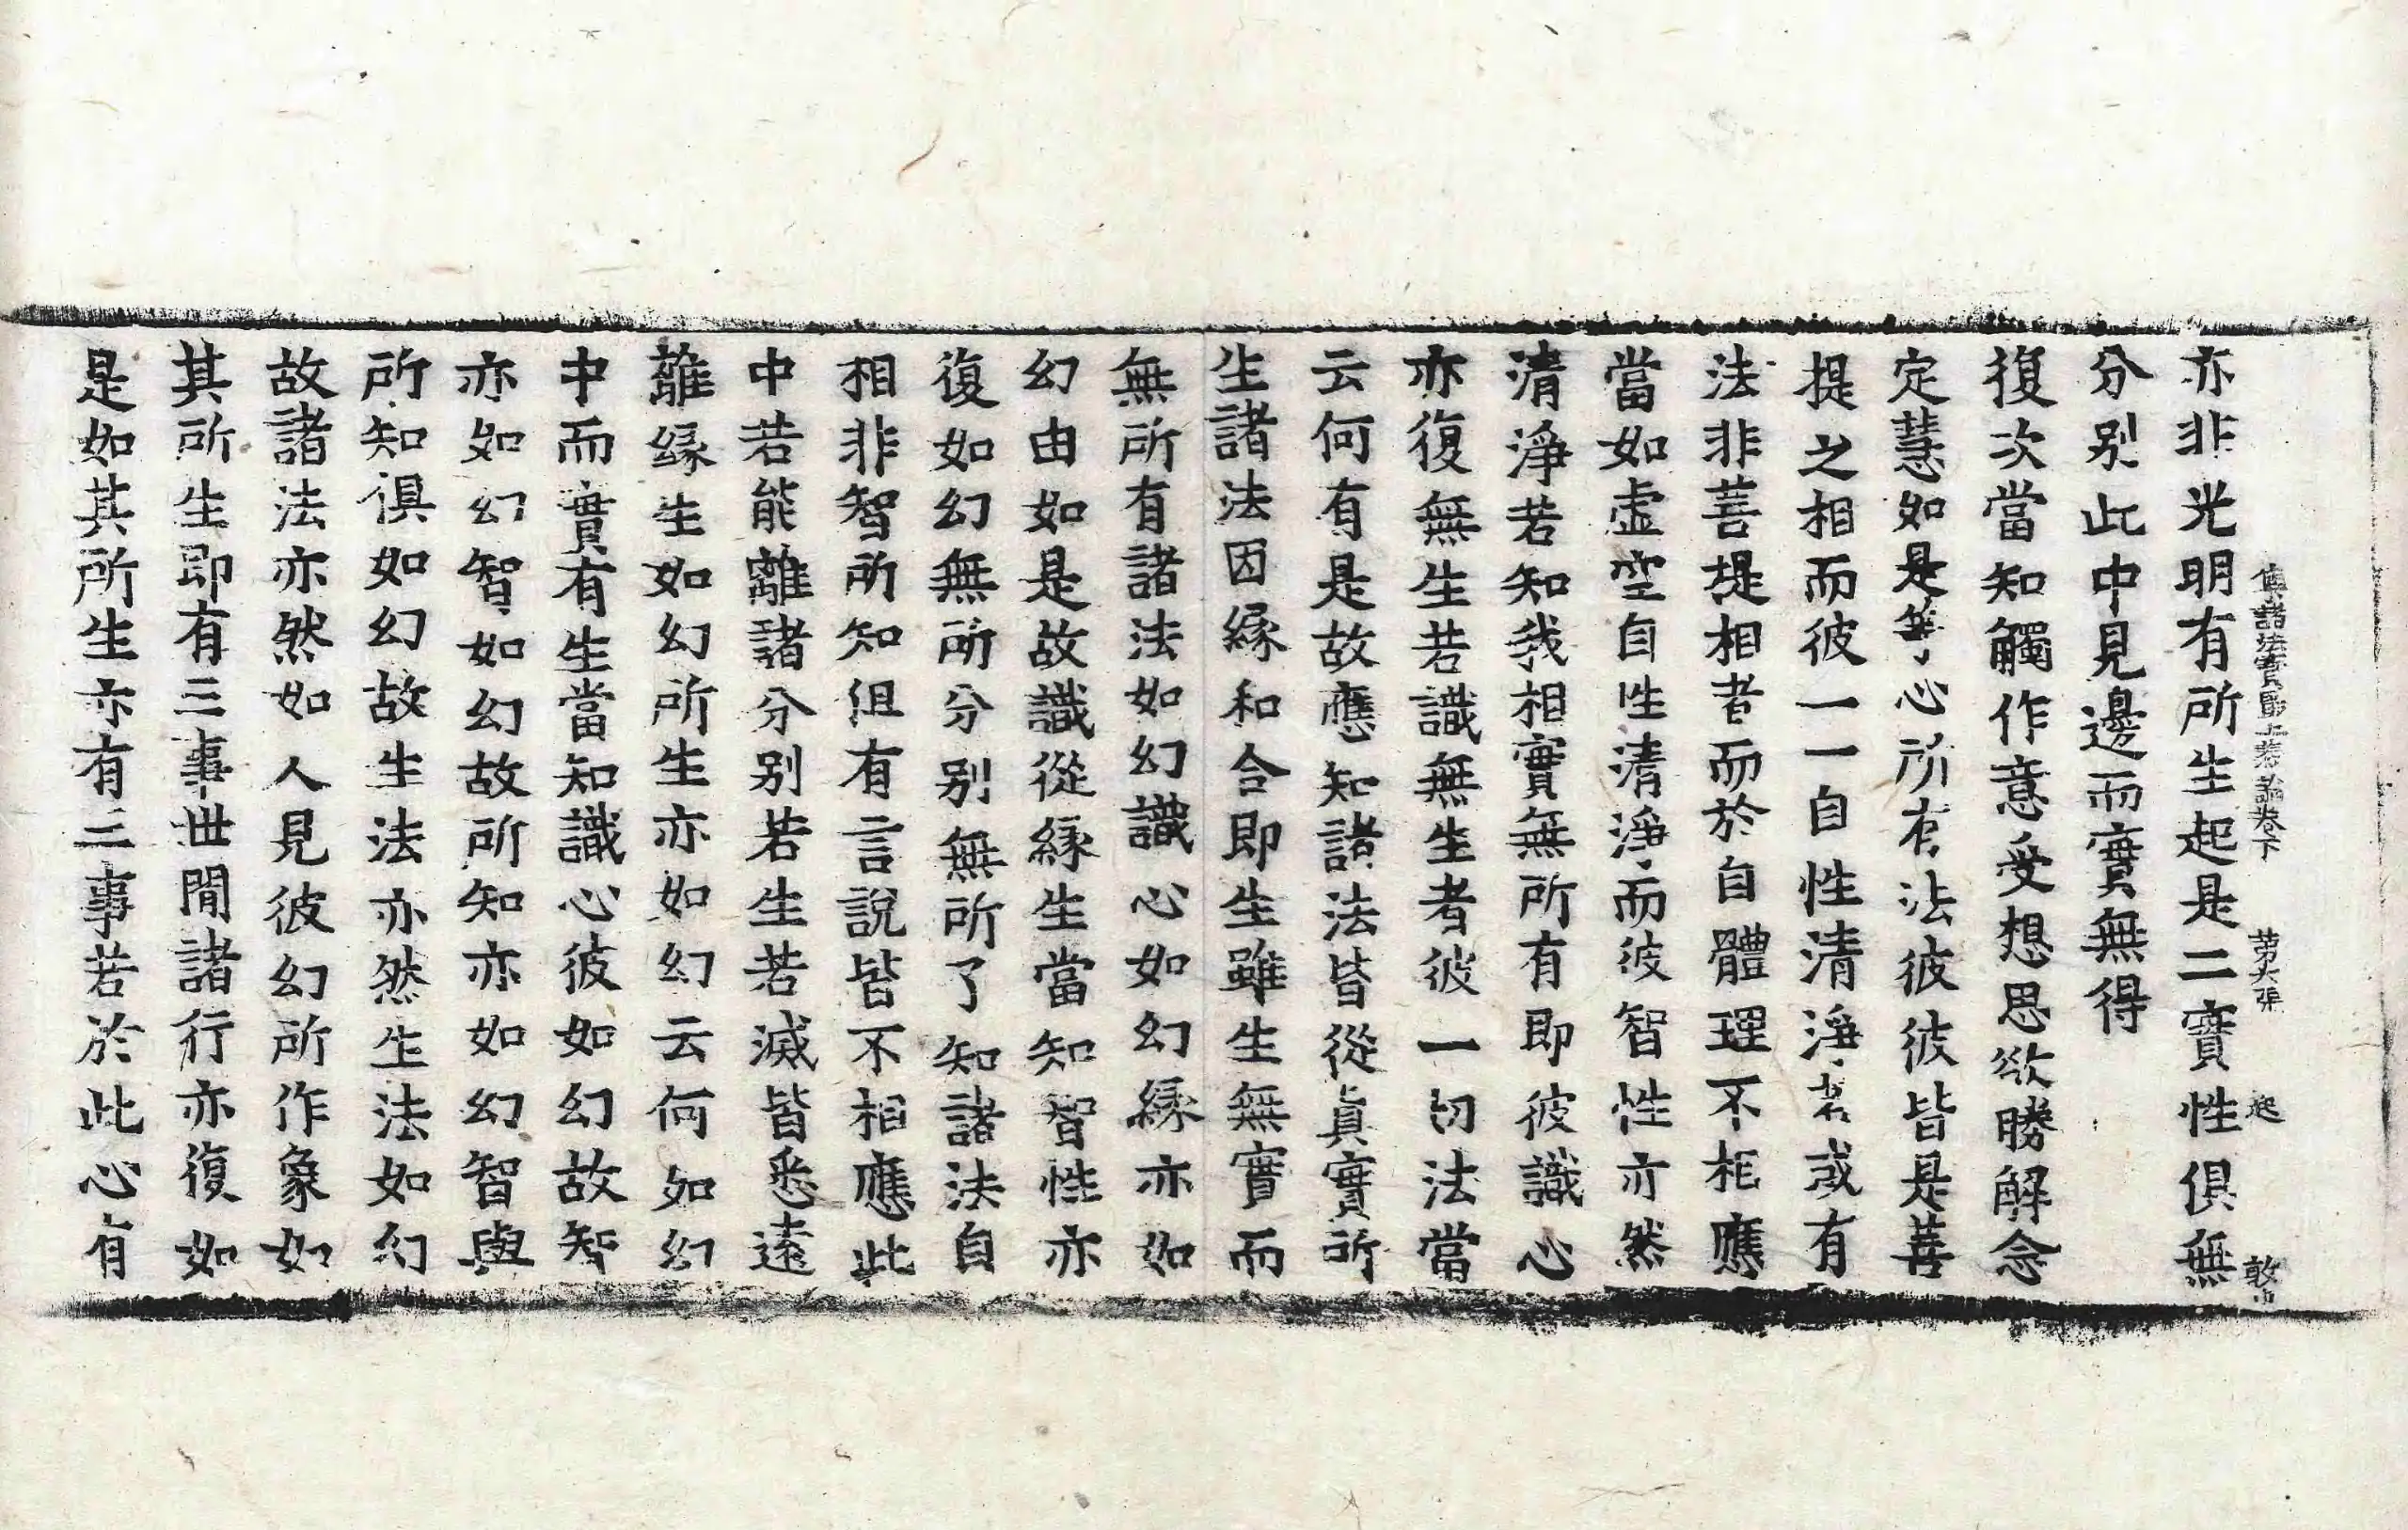 集諸法寶最上義論卷下 第六張 起 敦
亦非光明有所生起是二實性俱無
分別此中見邊而實無得
復次當知觸作意受想思欲勝解念
定慧如是等心所有法彼彼皆是菩
提之相而彼一一自性清淨若或有
法非菩提相者而於自體理不相應
當如虛空自性清淨而彼智性亦然
清淨若知我相實無所有即彼識心
亦復無生若識無生者彼一切法當
云何有是故應知諸法皆從眞實所
生諸法因緣和合即生雖生無實而
無所有諸法如幻識心如幻緣亦如
幻由如是故識從緣生當知智性亦
復如幻無所分別無所了知諸法自
相非智所知但有言說皆不相應此
中若能離諸分別若生若滅皆悉遠
離緣生如幻所生亦如幻云何如幻
中而實有生當知識心彼如幻故智
亦如幻智如幻故所知亦如幻智與
所知俱如幻故生法亦然生法如幻
故諸法亦然如人見彼幻所作象如
其所生即有三事世間諸行亦復如
是如其所生亦有三事若於此心有